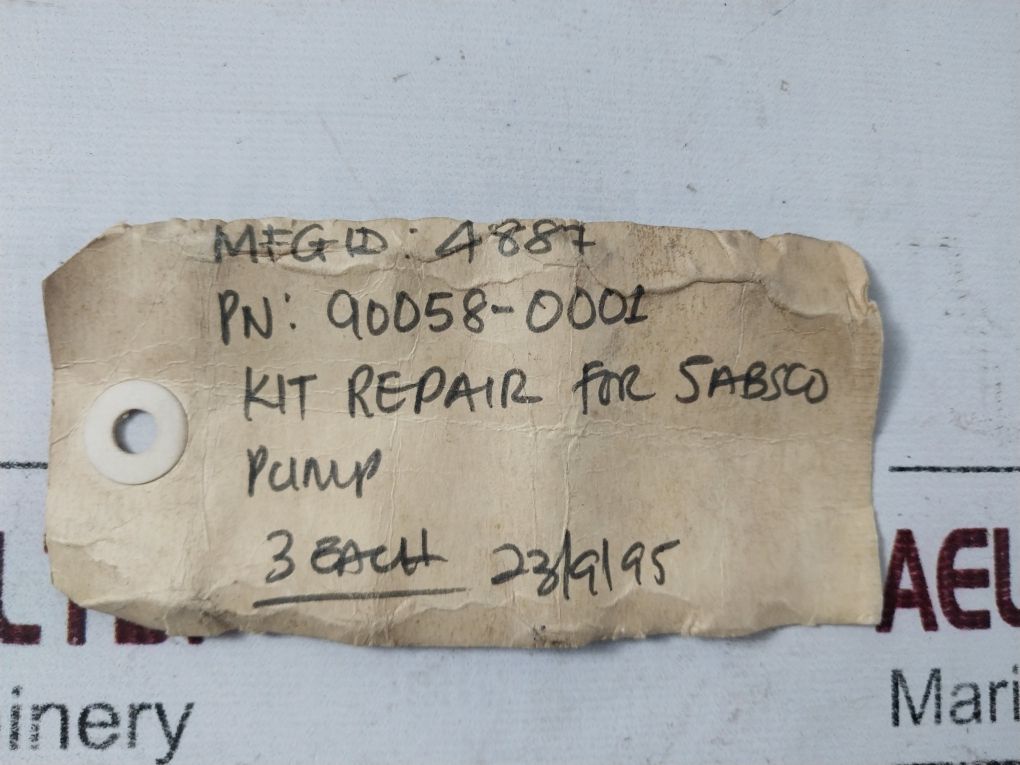 MFG ID: 4887
PN: 90058-0001
KIT REPAIR FOR SABSCO
PUMP
3 EACH 23/9/95
AEL
inery
Mari